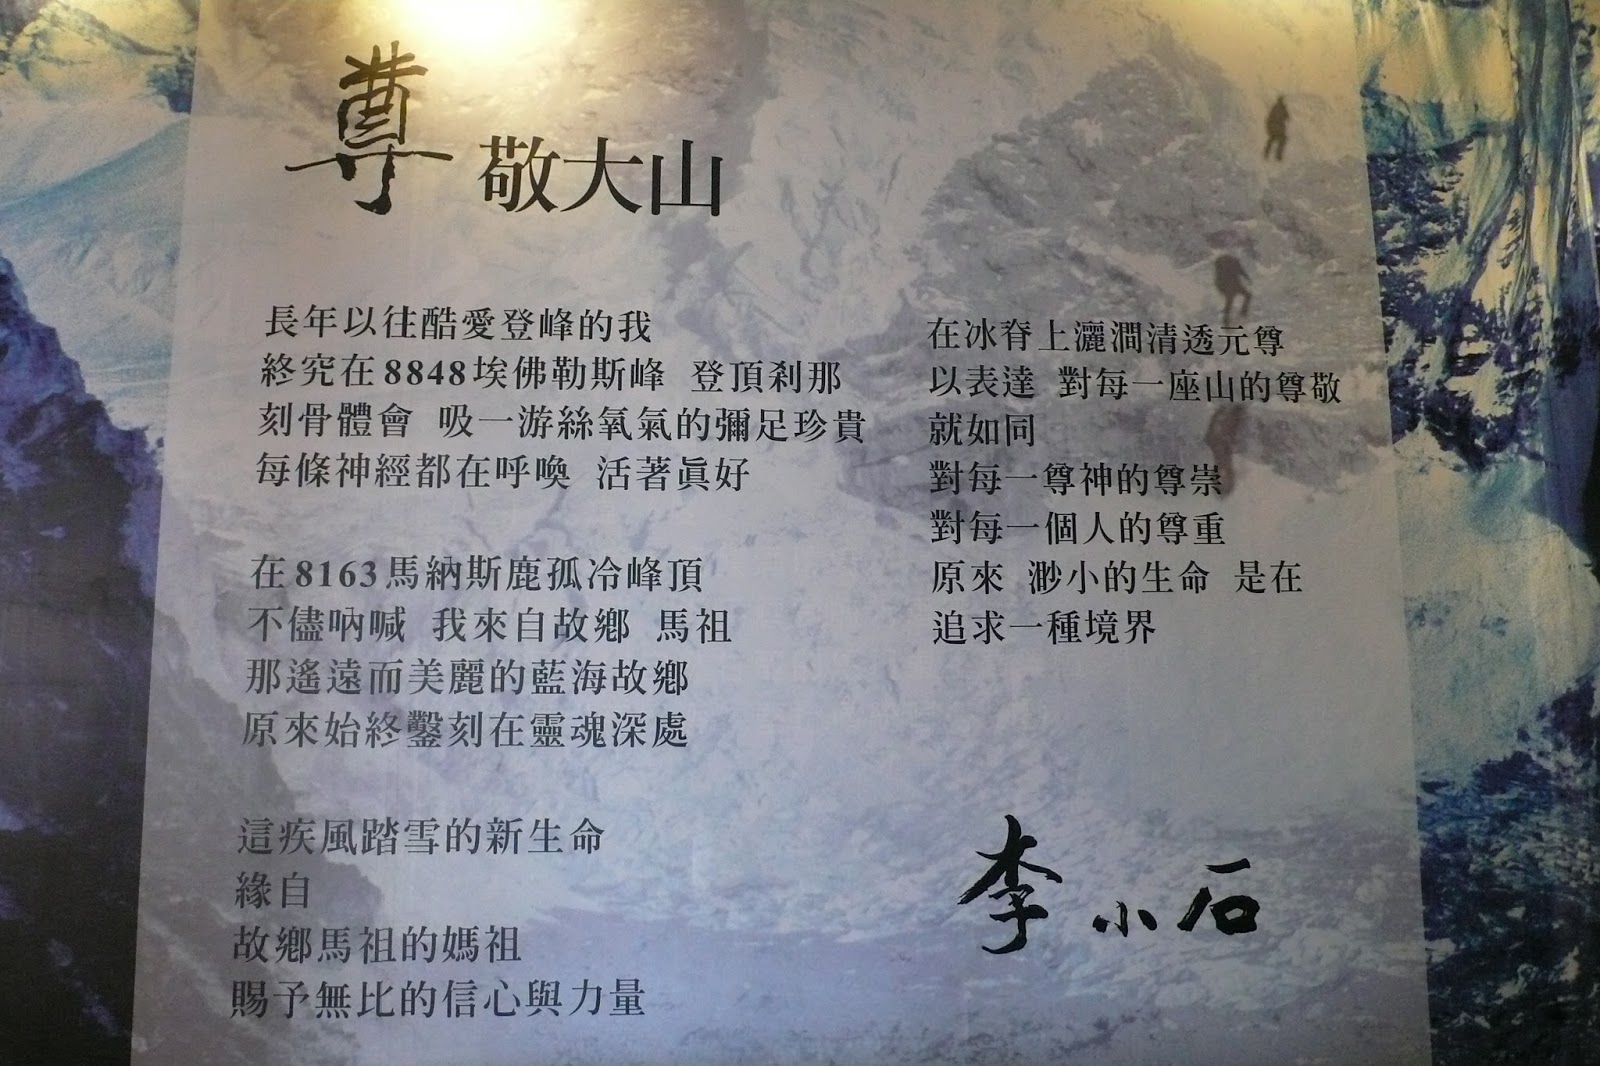 尊敬大山
長年以往酷愛登峰的我
終究在8848埃佛勒斯峰 登頂剎那
刻骨體會 吸一游絲氧氣的彌足珍貴
每條神經都在呼喚 活著眞好
在8163馬納斯鹿孤冷峰頂
不儘吶喊 我來自故鄉 馬祖
那遙遠而美麗的藍海故鄉
原來始終鑿刻在靈魂深處
這疾風踏雪的新生命
緣自
故鄉馬祖的媽祖
賜予無比的信心與力量
在冰脊上灑澗清透元尊
以表達 對每一座山的尊敬
就如同
對每一尊神的尊崇
對每一個人的尊重
原來 渺小的生命 是在
追求一種境界
李小石